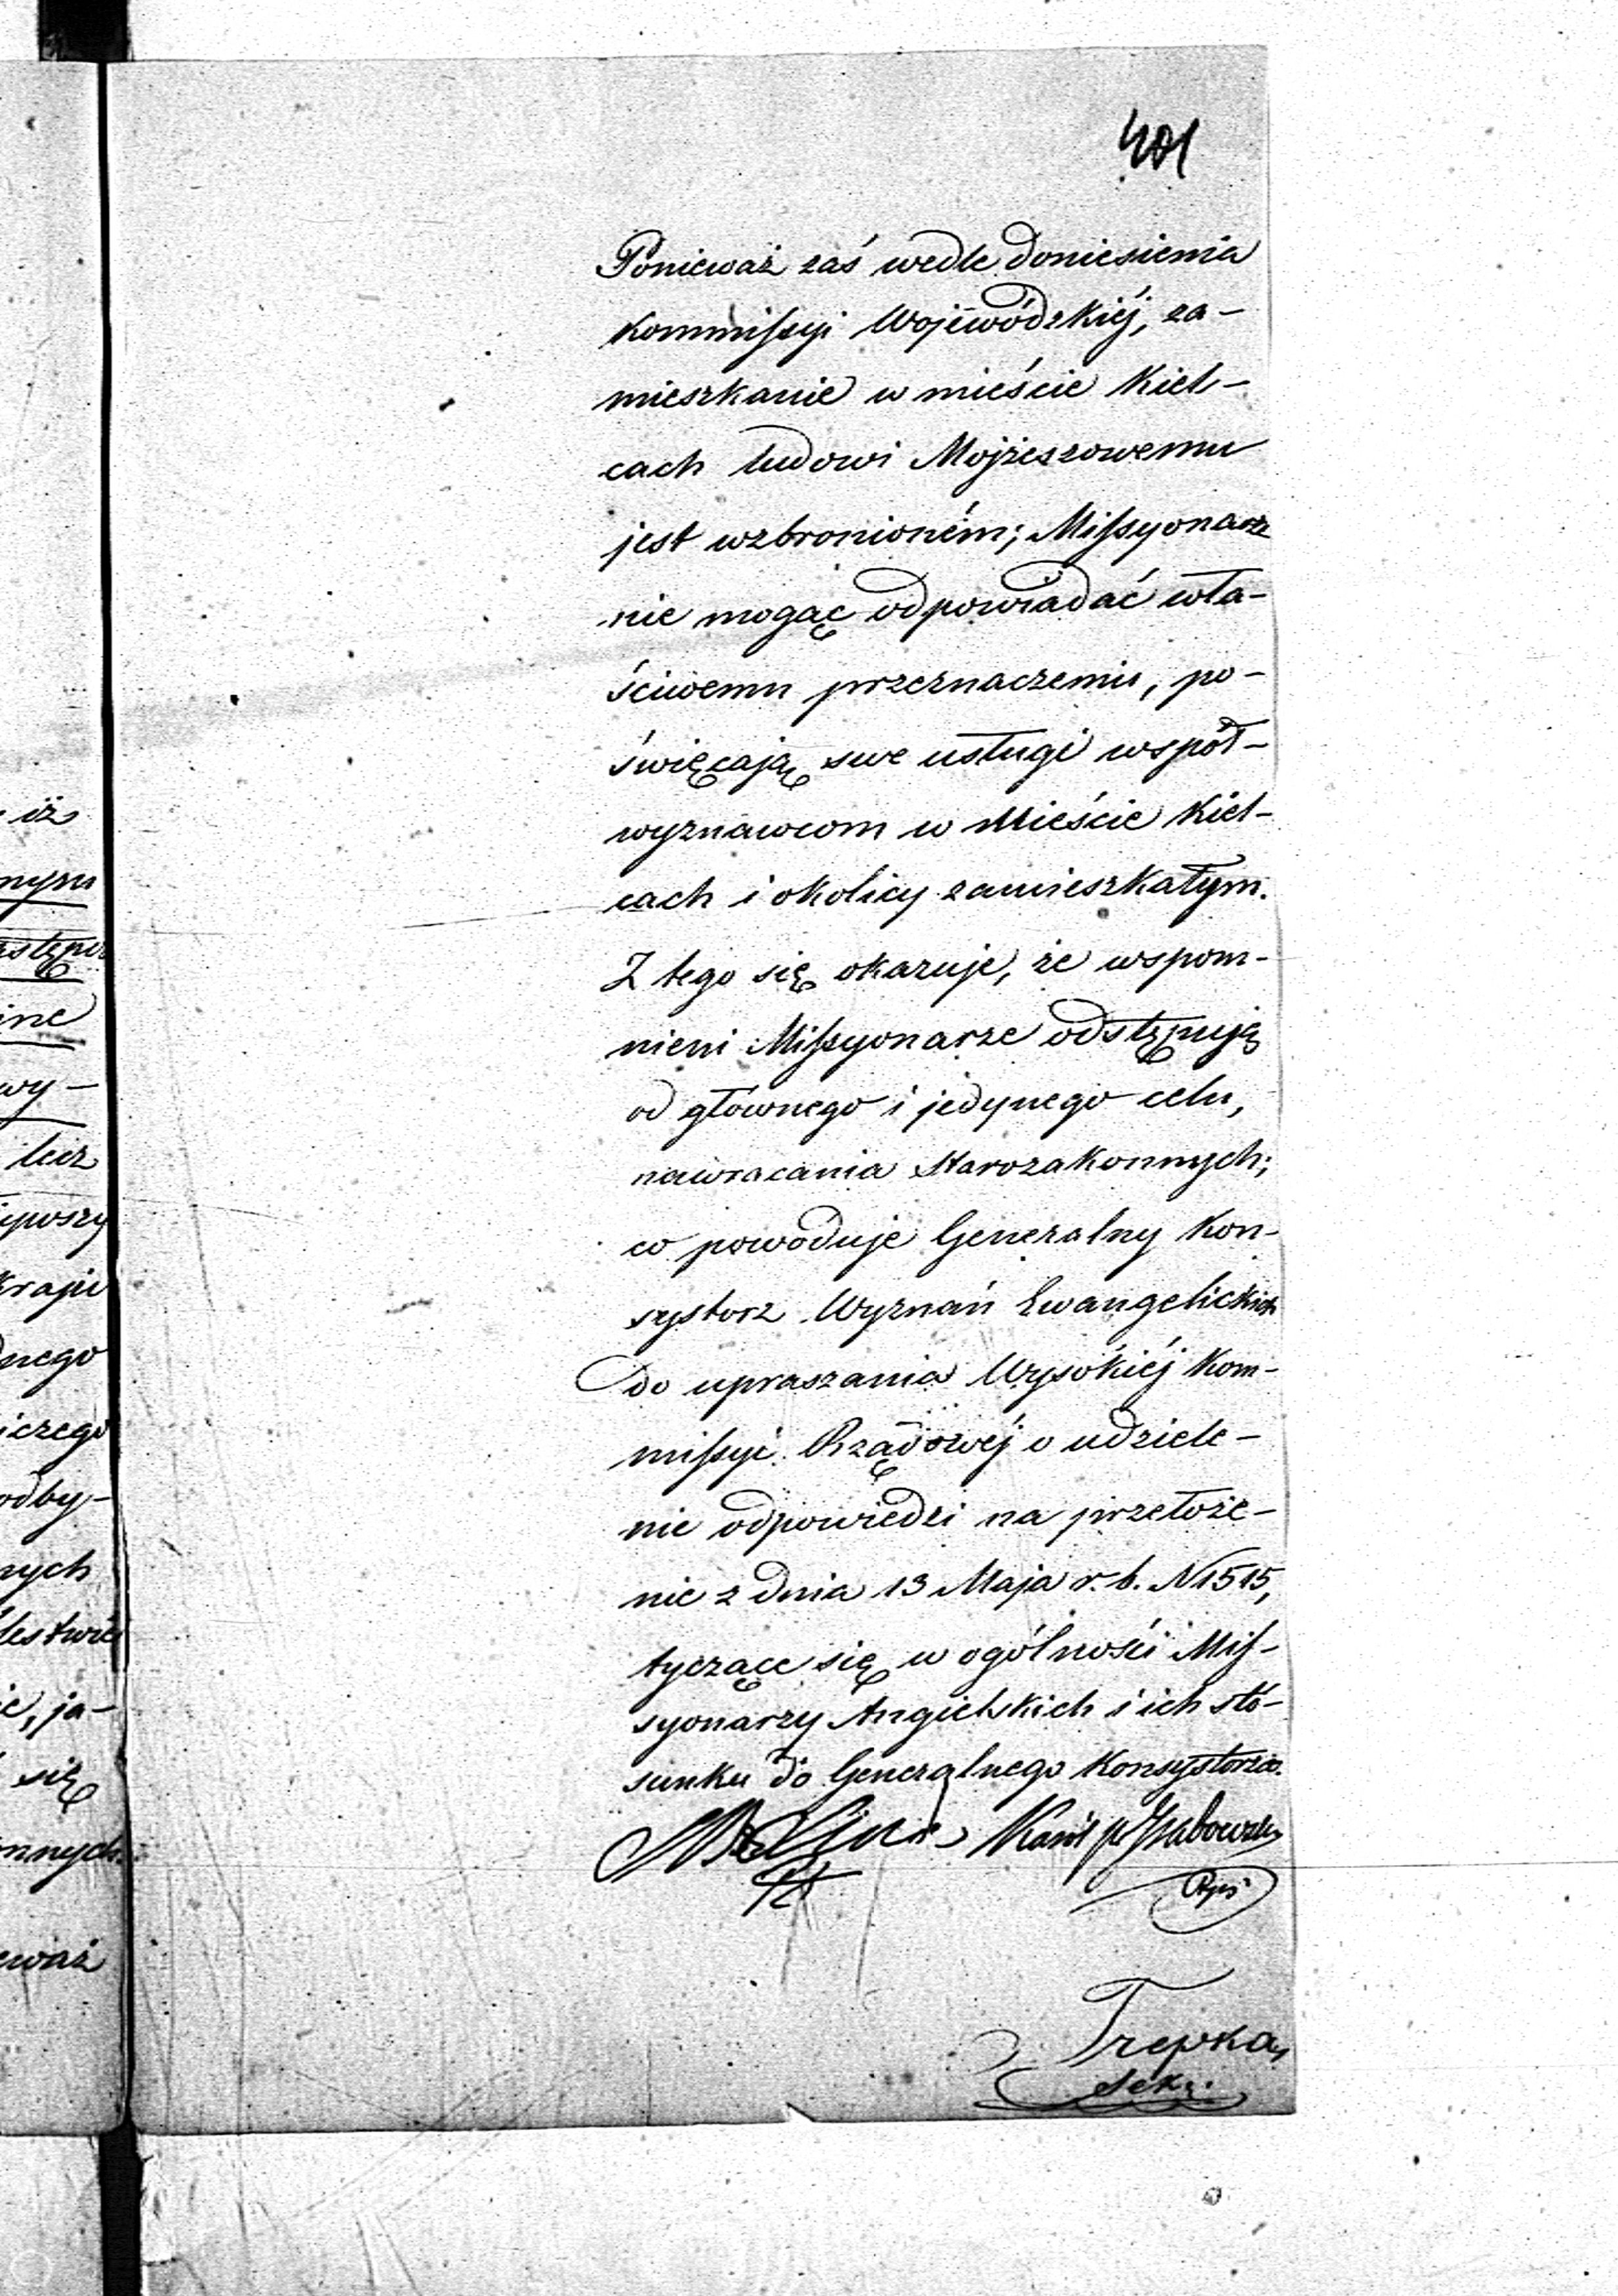 401
Ponieważ zaś wedle doniesienia
Kommissyi Wojewódzkiéj, za-
mieszkanie w mieście Kiel-
cach ludowi Mojżeszowemu
jest wzbronioném; Missyonarze
nie mogąc odpowiadać wła-
ściwemu przeznaczeniu, po-
święcają swe usługi współ-
wyznawcom w Mieście Kiel-
cach i okolicy zamieszkałym.
Z tego się okazuje, że wspom-
nieni Missyonarze odstępują
od głównego i jedynego celu,
nawracania Starozakonnych;
co powoduje Generalny Kon-
systorz Wyznań Ewangelickich
do upraszania Wysokiéj Kom-
missyi Rządowéj o udziele-
nie odpowiedzi na przełoże-
nie z dnia 13 Maja r. b. N 1515,
tyczące się w ogólności Mis-
syonarzy Angielskich i ich sto-
sunku do Generalnego Konsystorza.
Trepka
Sekr.
iż
wy-
lecz
kraju
dnego
iczego
odby-
nych
ja-
się
onnych
eważ